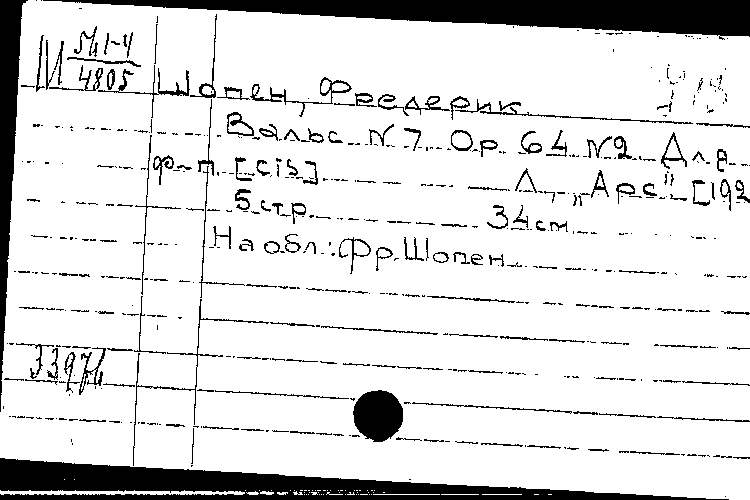 М 54 1-4
4805
Шопен, Фредерик
Вальс N 7. Op. 64 N2. Для
ф-п. [cis]. Л., „Арс“ [192
5 стр. 34 см.
На обл.: Фр. Шопен.
33974